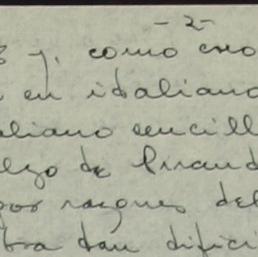 -2-
y. como creo
en italiano
aliano sencill
de Pirand
por razones del
tan difici